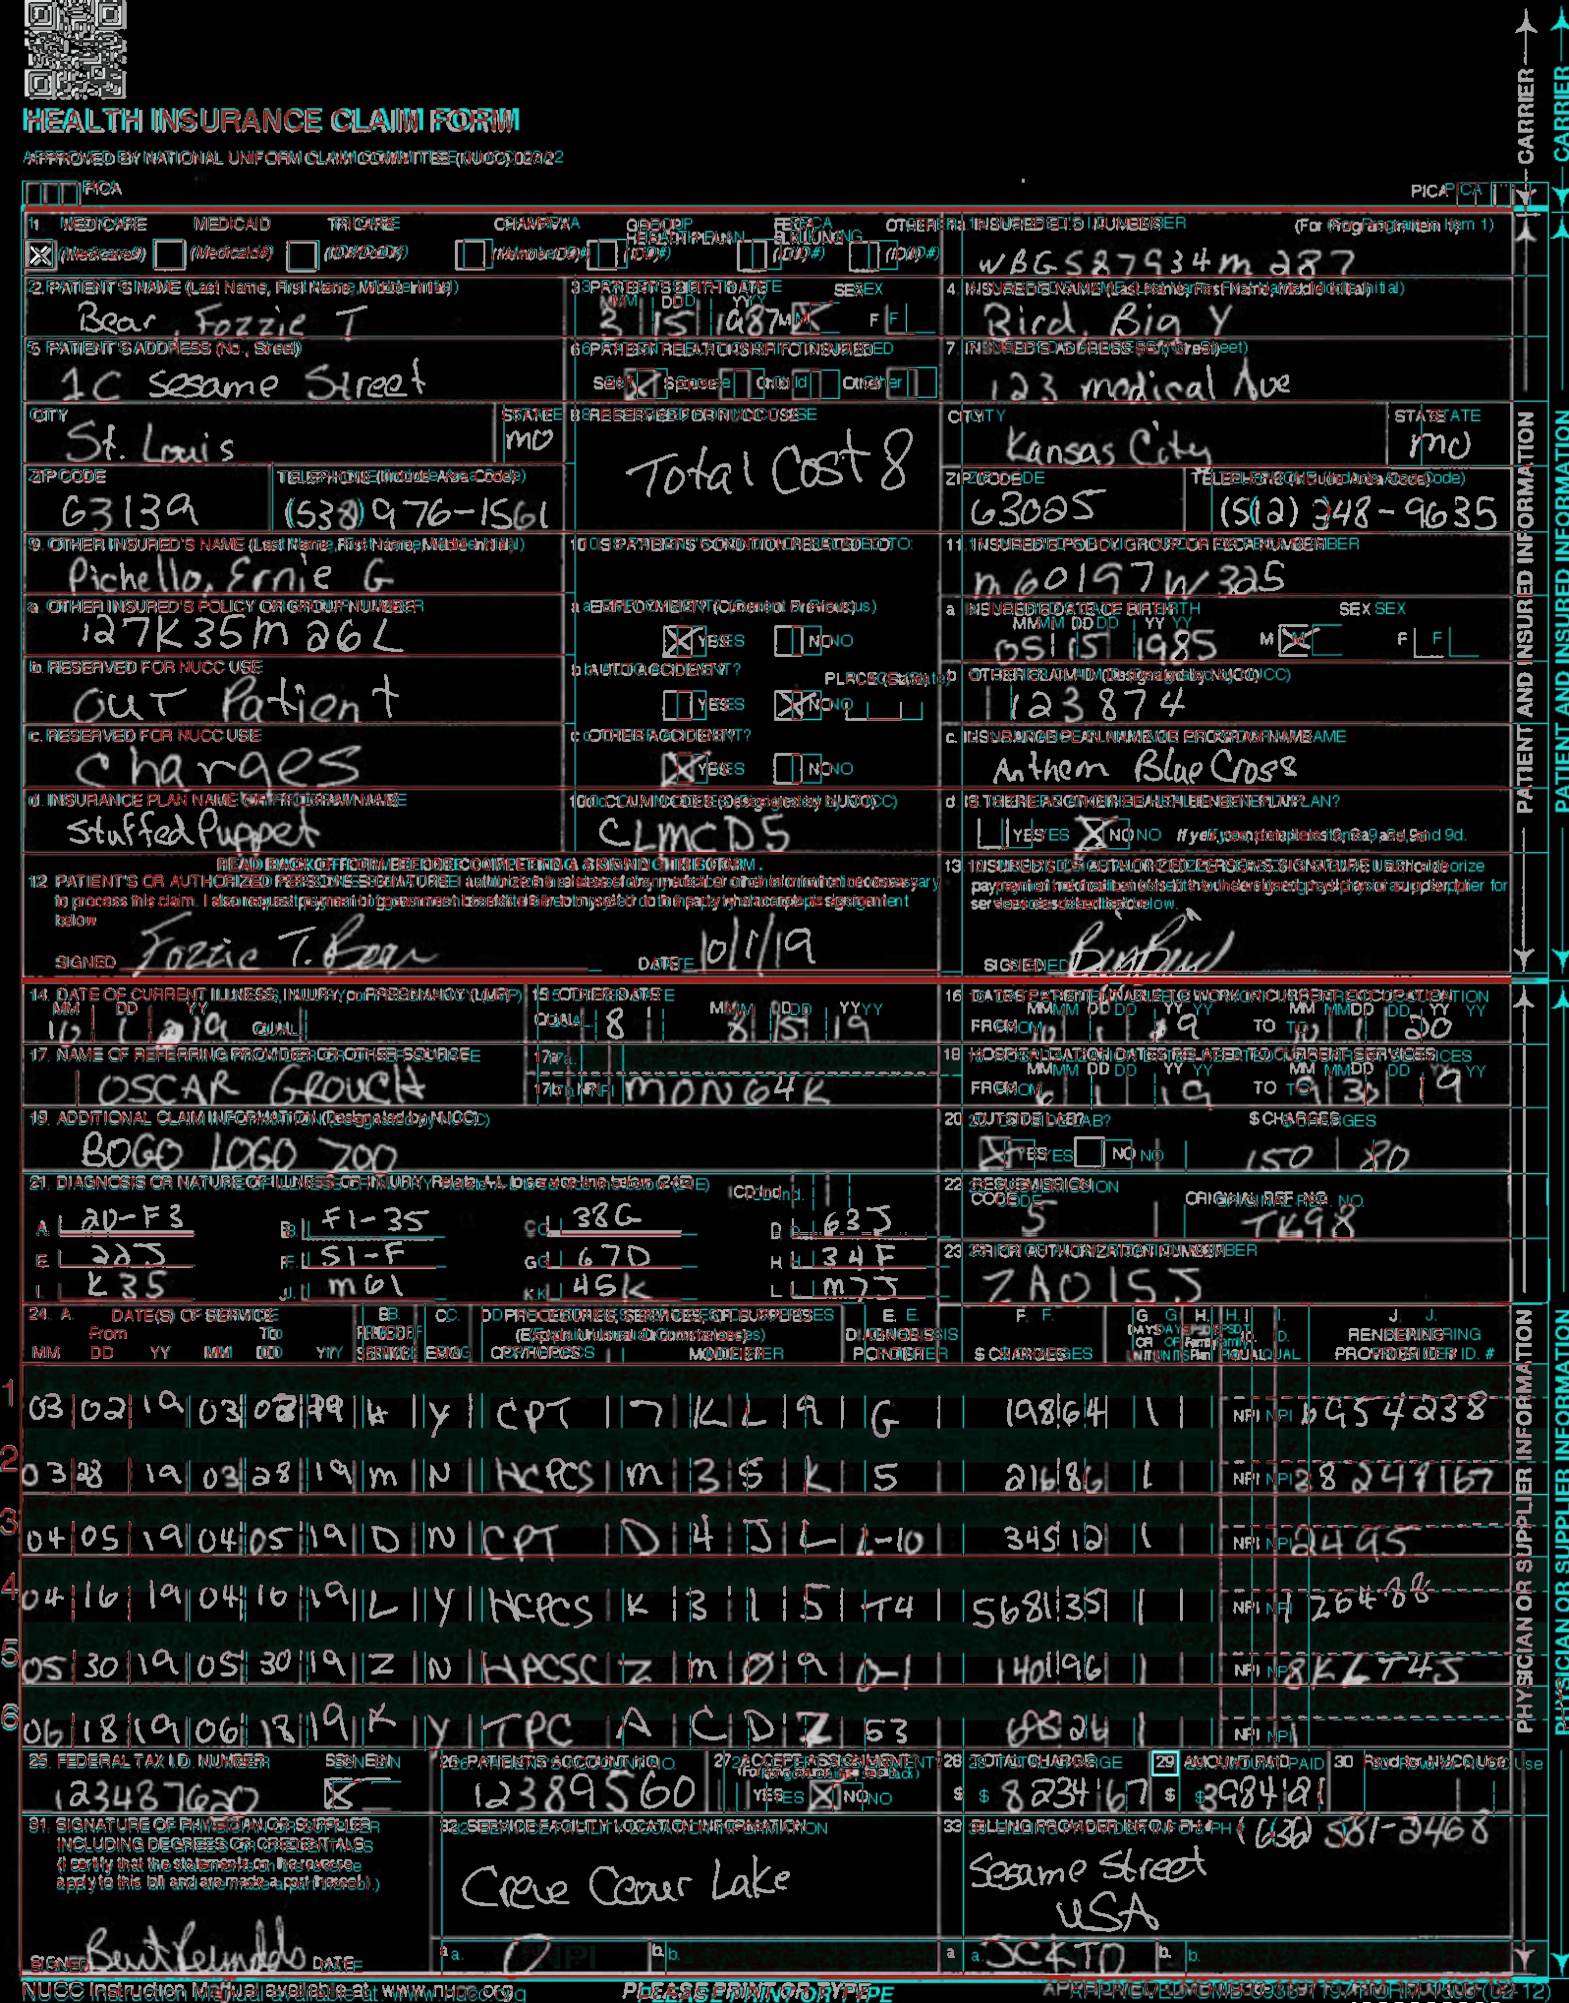 HEALTH INSURANCE CLAIM FORM
APPROVED BY NATIONAL UNIFORM CLAIM COMMITTEE (NUCC) 02/12
PICA PICA
CARRIER
1. MEDICARE MEDICAID TRICARE CHAMPVA GROUP HEALTH PLAN FECA BLK LUNG OTHER
(Medicare#) (Medicaid#) (ID#/DoD#) (Member ID#) (ID#) (ID#) (ID#)
1a. INSURED'S I.D. NUMBER (For Program in Item 1)
WBG587934M287
2. PATIENT'S NAME (Last Name, First Name, Middle Initial)
Bear, Fozzie T
3. PATIENT'S BIRTH DATE SEX
MM DD YY
3 15 1987 M X F
4. INSURED'S NAME (Last Name, First Name, Middle Initial)
Bird, Big Y
5. PATIENT'S ADDRESS (No., Street)
1C Sesame Street
6. PATIENT RELATIONSHIP TO INSURED
Self Spouse Child Other
7. INSURED'S ADDRESS (No., Street)
123 medical Ave
CITY STATE
St. Louis MO
8. RESERVED FOR NUCC USE
Total Cost 8
CITY STATE
Kansas City MO
ZIP CODE TELEPHONE (Include Area Code)
63139 (538) 976-1561
ZIP CODE TELEPHONE (Include Area Code)
63025 (512) 348-9635
9. OTHER INSURED'S NAME (Last Name, First Name, Middle Initial)
Pichello, Ernie G
10. IS PATIENT'S CONDITION RELATED TO:
11. INSURED'S POLICY GROUP OR FECA NUMBER
M60197W325
a. OTHER INSURED'S POLICY OR GROUP NUMBER
127K35M26L
a. EMPLOYMENT? (Current or Previous)
YES NO
a. INSURED'S DATE OF BIRTH SEX
MM DD YY
05 15 1985 M X F
b. RESERVED FOR NUCC USE
OUT Patient
b. AUTO ACCIDENT? PLACE (State)
YES NO
b. OTHER CLAIM ID (Designated by NUCC)
123874
c. RESERVED FOR NUCC USE
Charges
c. OTHER ACCIDENT?
YES NO
c. INSURANCE PLAN NAME OR PROGRAM NAME
Anthem Blue Cross
d. INSURANCE PLAN NAME OR PROGRAM NAME
Stuffed Puppet
10d. CLAIM CODES (Designated by NUCC)
CLMCD5
d. IS THERE ANOTHER HEALTH BENEFIT PLAN?
YES NO If yes, complete items 9, 9a, and 9d.
READ BACK OF FORM BEFORE COMPLETING & SIGNING THIS FORM.
12. PATIENT'S OR AUTHORIZED PERSON'S SIGNATURE I authorize the release of any medical or other information necessary
to process this claim. I also request payment of government benefits either to myself or to the party who accepts assignment
below.
SIGNED Fozzie T. Bear DATE 10/1/19
13. INSURED'S OR AUTHORIZED PERSON'S SIGNATURE I authorize
payment of medical benefits to the undersigned physician or supplier for
services described below.
SIGNED Big Bird
PATIENT AND INSURED INFORMATION
14. DATE OF CURRENT ILLNESS, INJURY, or PREGNANCY (LMP)
MM DD YY
10 1 19 QUAL.
15. OTHER DATE MM DD YY
QUAL. 8 8 15 19
16. DATES PATIENT UNABLE TO WORK IN CURRENT OCCUPATION
MM DD YY MM DD YY
FROM 1 19 TO 1 20
17. NAME OF REFERRING PROVIDER OR OTHER SOURCE
OSCAR GROUCH
17a.
17b. NPI MON64K
18. HOSPITALIZATION DATES RELATED TO CURRENT SERVICES
MM DD YY MM DD YY
FROM 6 1 19 TO 9 30 19
19. ADDITIONAL CLAIM INFORMATION (Designated by NUCC)
BOGO LOGO 700
20. OUTSIDE LAB? $ CHARGES
YES NO 150 80
21. DIAGNOSIS OR NATURE OF ILLNESS OR INJURY Relate A-L to service line below (24E) ICD Ind.
A. 2D-F3 B. F1-35 C. 38G D. 63J
E. 22J F. S1-F G. 67D H. 34F
I. K35 J. M61 K. 45K L. M7J
22. RESUBMISSION CODE ORIGINAL REF. NO.
5 TK98
23. PRIOR AUTHORIZATION NUMBER
ZA015J
24. A. DATE(S) OF SERVICE B. C. D. PROCEDURES, SERVICES, OR SUPPLIES E. F. G. H. I. J.
From To PLACE OF (Explain Unusual Circumstances) DIAGNOSIS DAYS OR EPSDT Family ID. RENDERING
MM DD YY MM DD YY SERVICE EMG CPT/HCPCS MODIFIER POINTER $ CHARGES UNITS Plan QUAL. PROVIDER ID. #
1 03 02 19 03 02 19 H Y CPT 7 K L 9 G 198 64 1 NPI 6954238
2 03 28 19 03 28 19 M N HCPCS M 3 5 K 5 216 86 1 NPI 38248167
3 04 05 19 04 05 19 D N CPT D 4 J L L-10 345 12 1 NPI 2495
4 04 16 19 04 16 19 L Y HCPCS K 3 1 5 T4 568 135 1 NPI 126488
5 05 30 19 05 30 19 Z N HPCSC Z M 0 9 0-1 140 196 1 NPI 8KLT45
6 06 18 19 06 18 19 K Y TPC A C D Z 53 26 NPI 1
25. FEDERAL TAX I.D. NUMBER SSN EIN
123487620
26. PATIENT'S ACCOUNT NO.
12389560
27. ACCEPT ASSIGNMENT?
YES NO
28. TOTAL CHARGE
$ 8234 67
29. AMOUNT PAID
$ 3984 21
30. Rsvd for NUCC Use
31. SIGNATURE OF PHYSICIAN OR SUPPLIER
INCLUDING DEGREES OR CREDENTIALS
(I certify that the statements on the reverse
apply to this bill and are made a part thereof.)
SIGNED Burt Reynolds DATE
32. SERVICE FACILITY LOCATION INFORMATION
Creve Ceour Lake
a. NPI b.
33. BILLING PROVIDER INFO & PH # (636) 581-2468
Sesame Street
USA
a. JCKTD b.
PHYSICIAN OR SUPPLIER INFORMATION
NUCC Instruction Manual available at: www.nucc.org
PLEASE PRINT OR TYPE